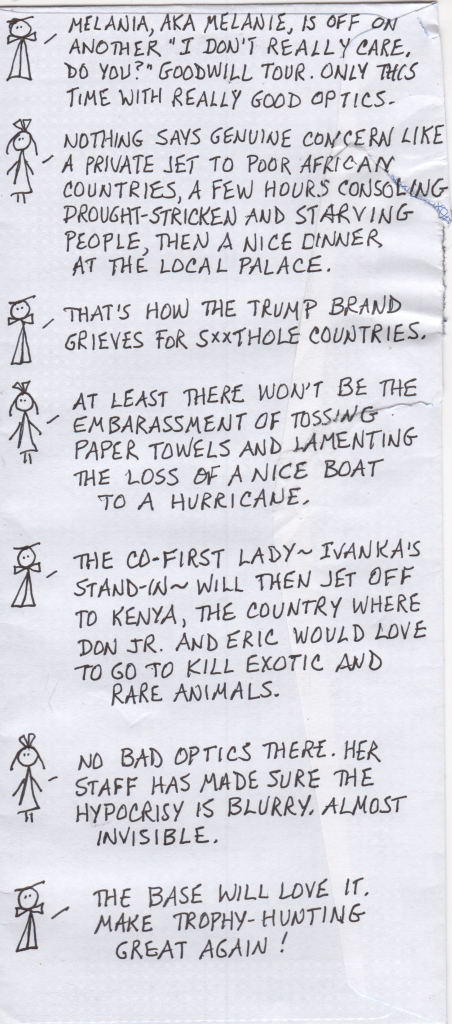 MELANIA, AKA MELANIE, IS OFF ON
ANOTHER "I DON'T REALLY CARE.
DO YOU?" GOODWILL TOUR. ONLY THIS
TIME WITH REALLY GOOD OPTICS.
NOTHING SAYS GENUINE CONCERN LIKE
A PRIVATE JET TO POOR AFRICAN
COUNTRIES, A FEW HOURS CONSOLING
DROUGHT-STRICKEN AND STARVING
PEOPLE, THEN A NICE DINNER
AT THE LOCAL PALACE.
THAT'S HOW THE TRUMP BRAND
GRIEVES FOR SXXTHOLE COUNTRIES.
AT LEAST THERE WON'T BE THE
EMBARASSMENT OF TOSSING
PAPER TOWELS AND LAMENTING
THE LOSS OF A NICE BOAT
TO A HURRICANE.
THE CO-FIRST LADY~ IVANKA'S
STAND-IN~ WILL THEN JET OFF
TO KENYA, THE COUNTRY WHERE
DON JR. AND ERIC WOULD LOVE
TO GO TO KILL EXOTIC AND
RARE ANIMALS.
NO BAD OPTICS THERE. HER
STAFF HAS MADE SURE THE
HYPOCRISY IS BLURRY. ALMOST
INVISIBLE.
THE BASE WILL LOVE IT.
MAKE TROPHY-HUNTING
GREAT AGAIN!